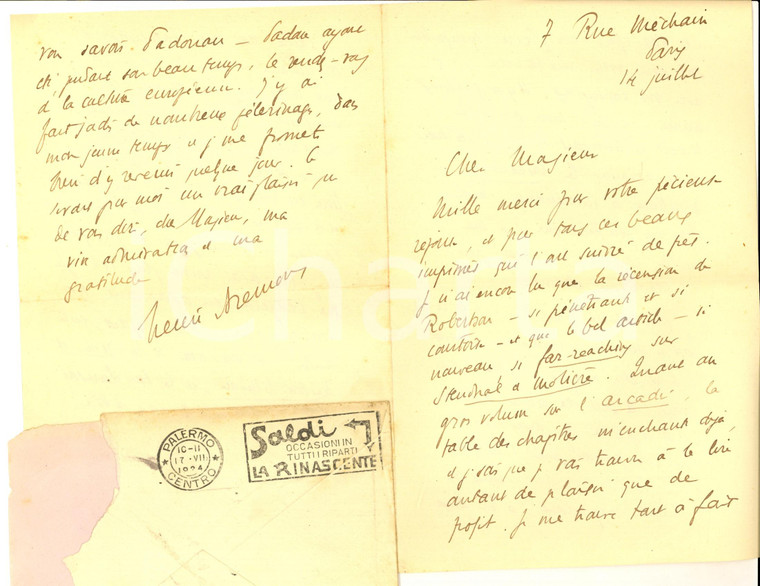 7 Rue Méchain
Paris
14 juillet
Cher Monsieur
Mille merci pour votre précieuse
réponse, et pour tous ces beaux
imprimés qui l'ont suivie de près.
Je n'ai encore lu que la récension de
Robertson — si pénétrant et si
courtois — et que le bel article — si
nouveau si far-reaching sur
Stendhal et Molière. Quant au
gros volume sur l'arcadie, la
table des chapitres m'enchante déjà,
et je sais que je vais trouver à le lire
autant de plaisir que de
profit. Je me trouve tout à fait
votre savoir Padouan — Padoue ayant
été, pendant son beau temps, le rendez-vous
de la culture européenne. J'y ai
fait jadis de nombreux pèlerinages, dans
mon jeune temps et je me promets
bien d'y revenir quelque jour. Ce
serait pour moi un vrai plaisir
de vous dire, cher Monsieur, ma
vive admiration et ma
gratitude
PALERMO
10-11
17·VII
1924
CENTRO
Saldi
OCCASIONI IN
TUTTI I RIPARTI
LA RINASCENTE
iCharta